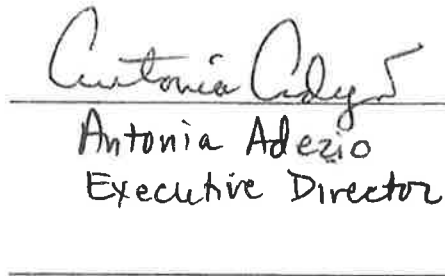 Antonia Adezio
Antonia Adezio
Executive Director